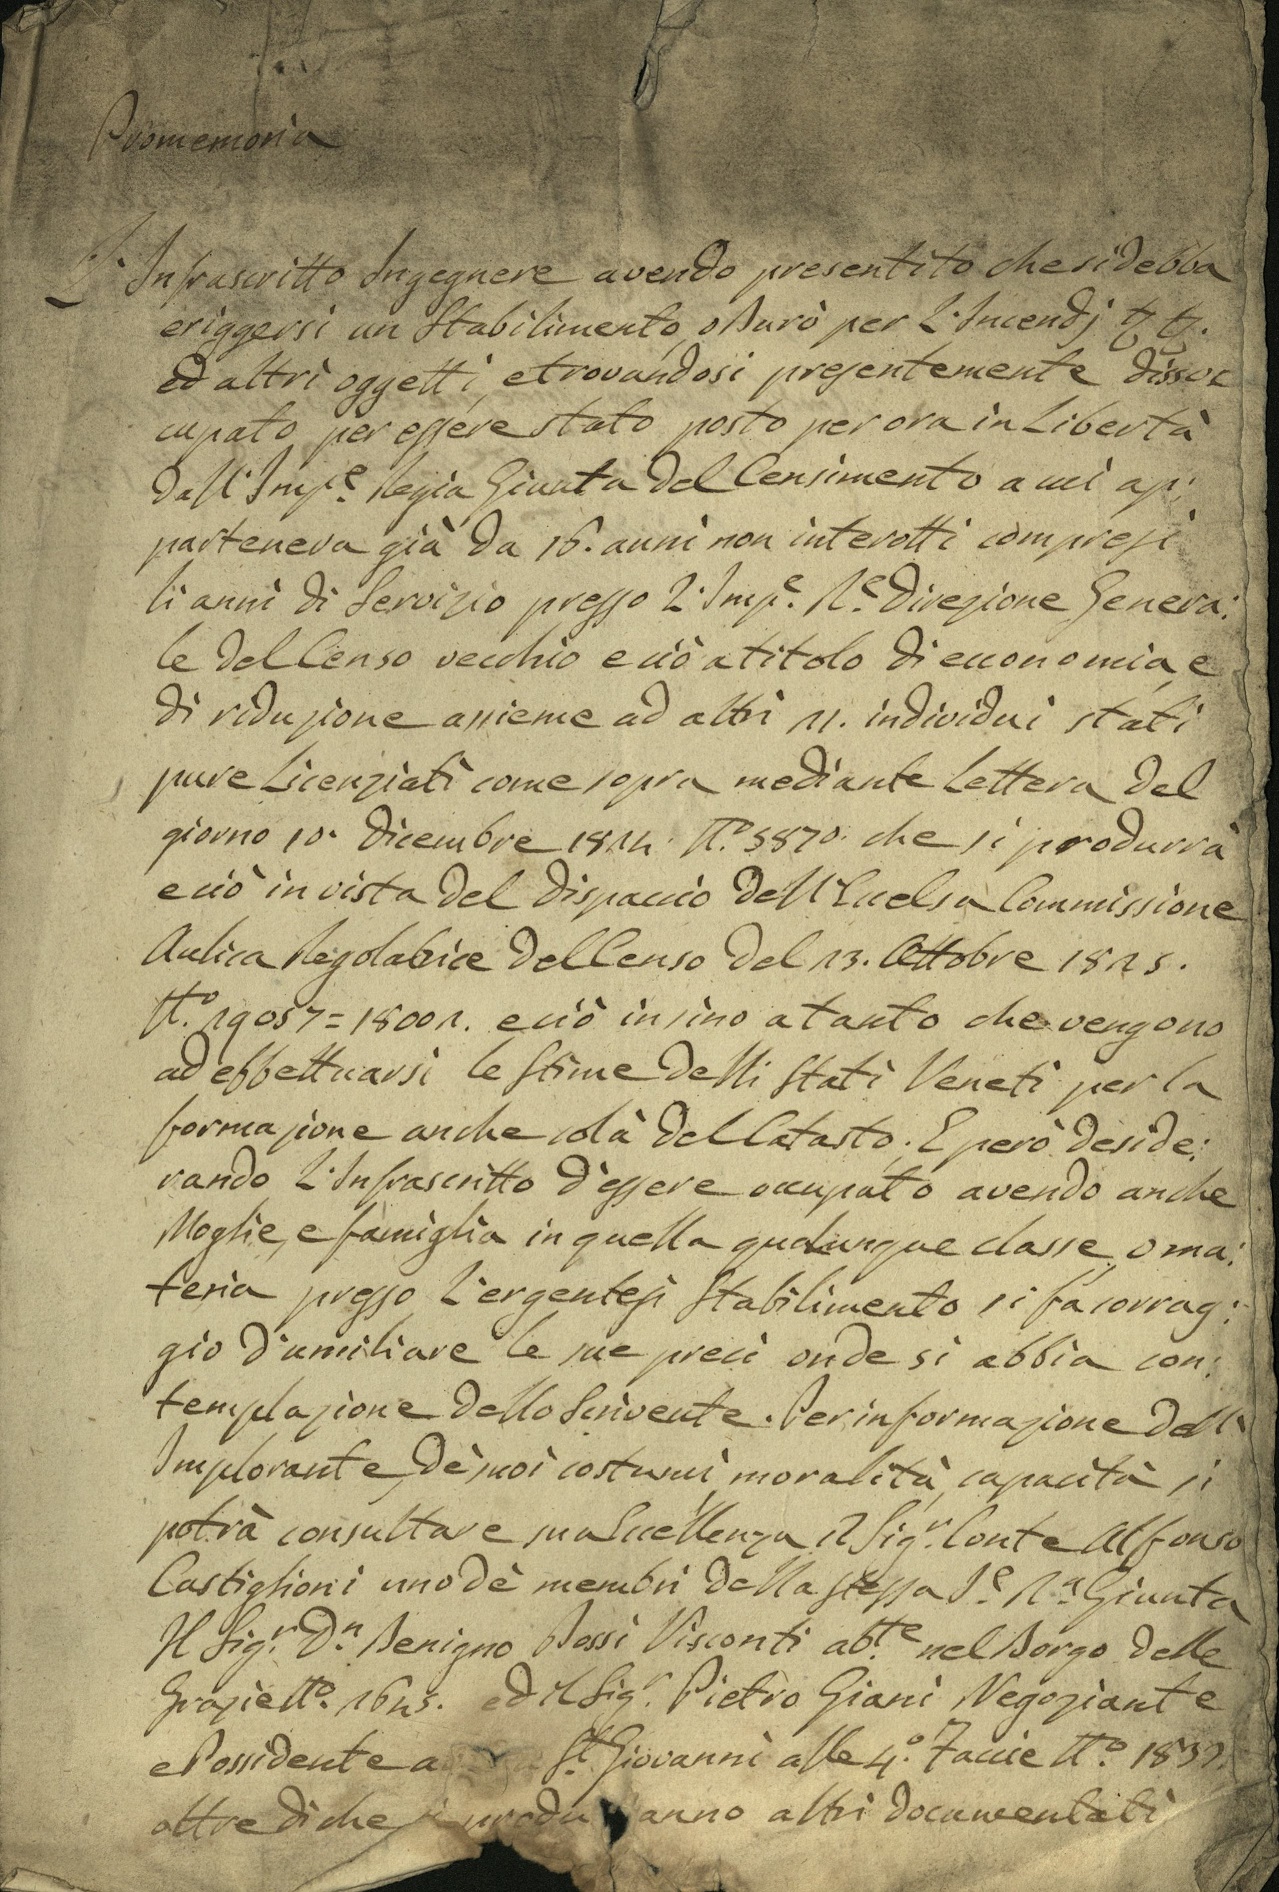 Promemoria
L'Infrascritto Ingegnere avendo presentito che si debba
eriggersi un Stabilimento, o Burò per L'Incendj
ed altri oggetti, e trovandosi presentemente disoc
cupato per essere stato posto per ora in Libertà
dall'Imp.e Regia Giunta del Censimento a cui ap:
parteneva già da 16. anni non interotti compresi
li anni di Servizio presso L'Imp.e R.e Direzione Genera:
le del Censo vecchio e ciò a titolo di economia, e
di riduzione assieme ad altri 11. individui stati
pure Licenziati come sopra mediante Lettera del
giorno 10. Dicembre N.o 3870. che si produrrà
e ciò in vista del Dispaccio dell'Eccelsa Commissione
Aulica Regolatrice del Censo del 13. Ottobre 1825.
N.o e ciò insino a tanto che vengono
ad effettuarsi le Stime delli Stati Veneti per la
formazione anche colà del Catasto. E però deside:
rando L'Infrascritto d'essere occupato avendo anche
Moglie, e famiglia in quella qualunque classe, o ma:
teria presso L'ergentesi Stabilimento si fà corrag:
gio d'umiliare le sue preci onde si abbia con:
templazione dello Scrivente. Per informazione dell'
Implorante, dè suoi costumi, moralità, capacità si
potrà consultare sua Eccellenza il Sig.r Conte Alfonso
Castiglioni uno dè membri della stessa I.e R.a Giunta
Il Sig.r D.n Benigno Bossi Visconti ab.te nel Borgo delle
Grazie N.o ed il Sig.r Pietro Giani Negoziante
e Possidente a S.t Giovanni alle 4.o Faccie N.o
oltre di che si produ anno altri documentati